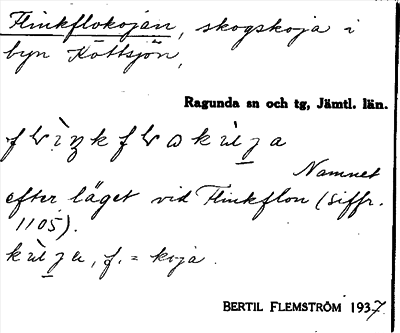 Flinkflokojan, skogskoja i
bynKöttsjön,
Ragunda sn och tg, Jämtl. län.
Namnet
efter läget vid Flinkflon (siffr.
1105).
f. = koja.
BERTIL FLEMSTRÖM 1937